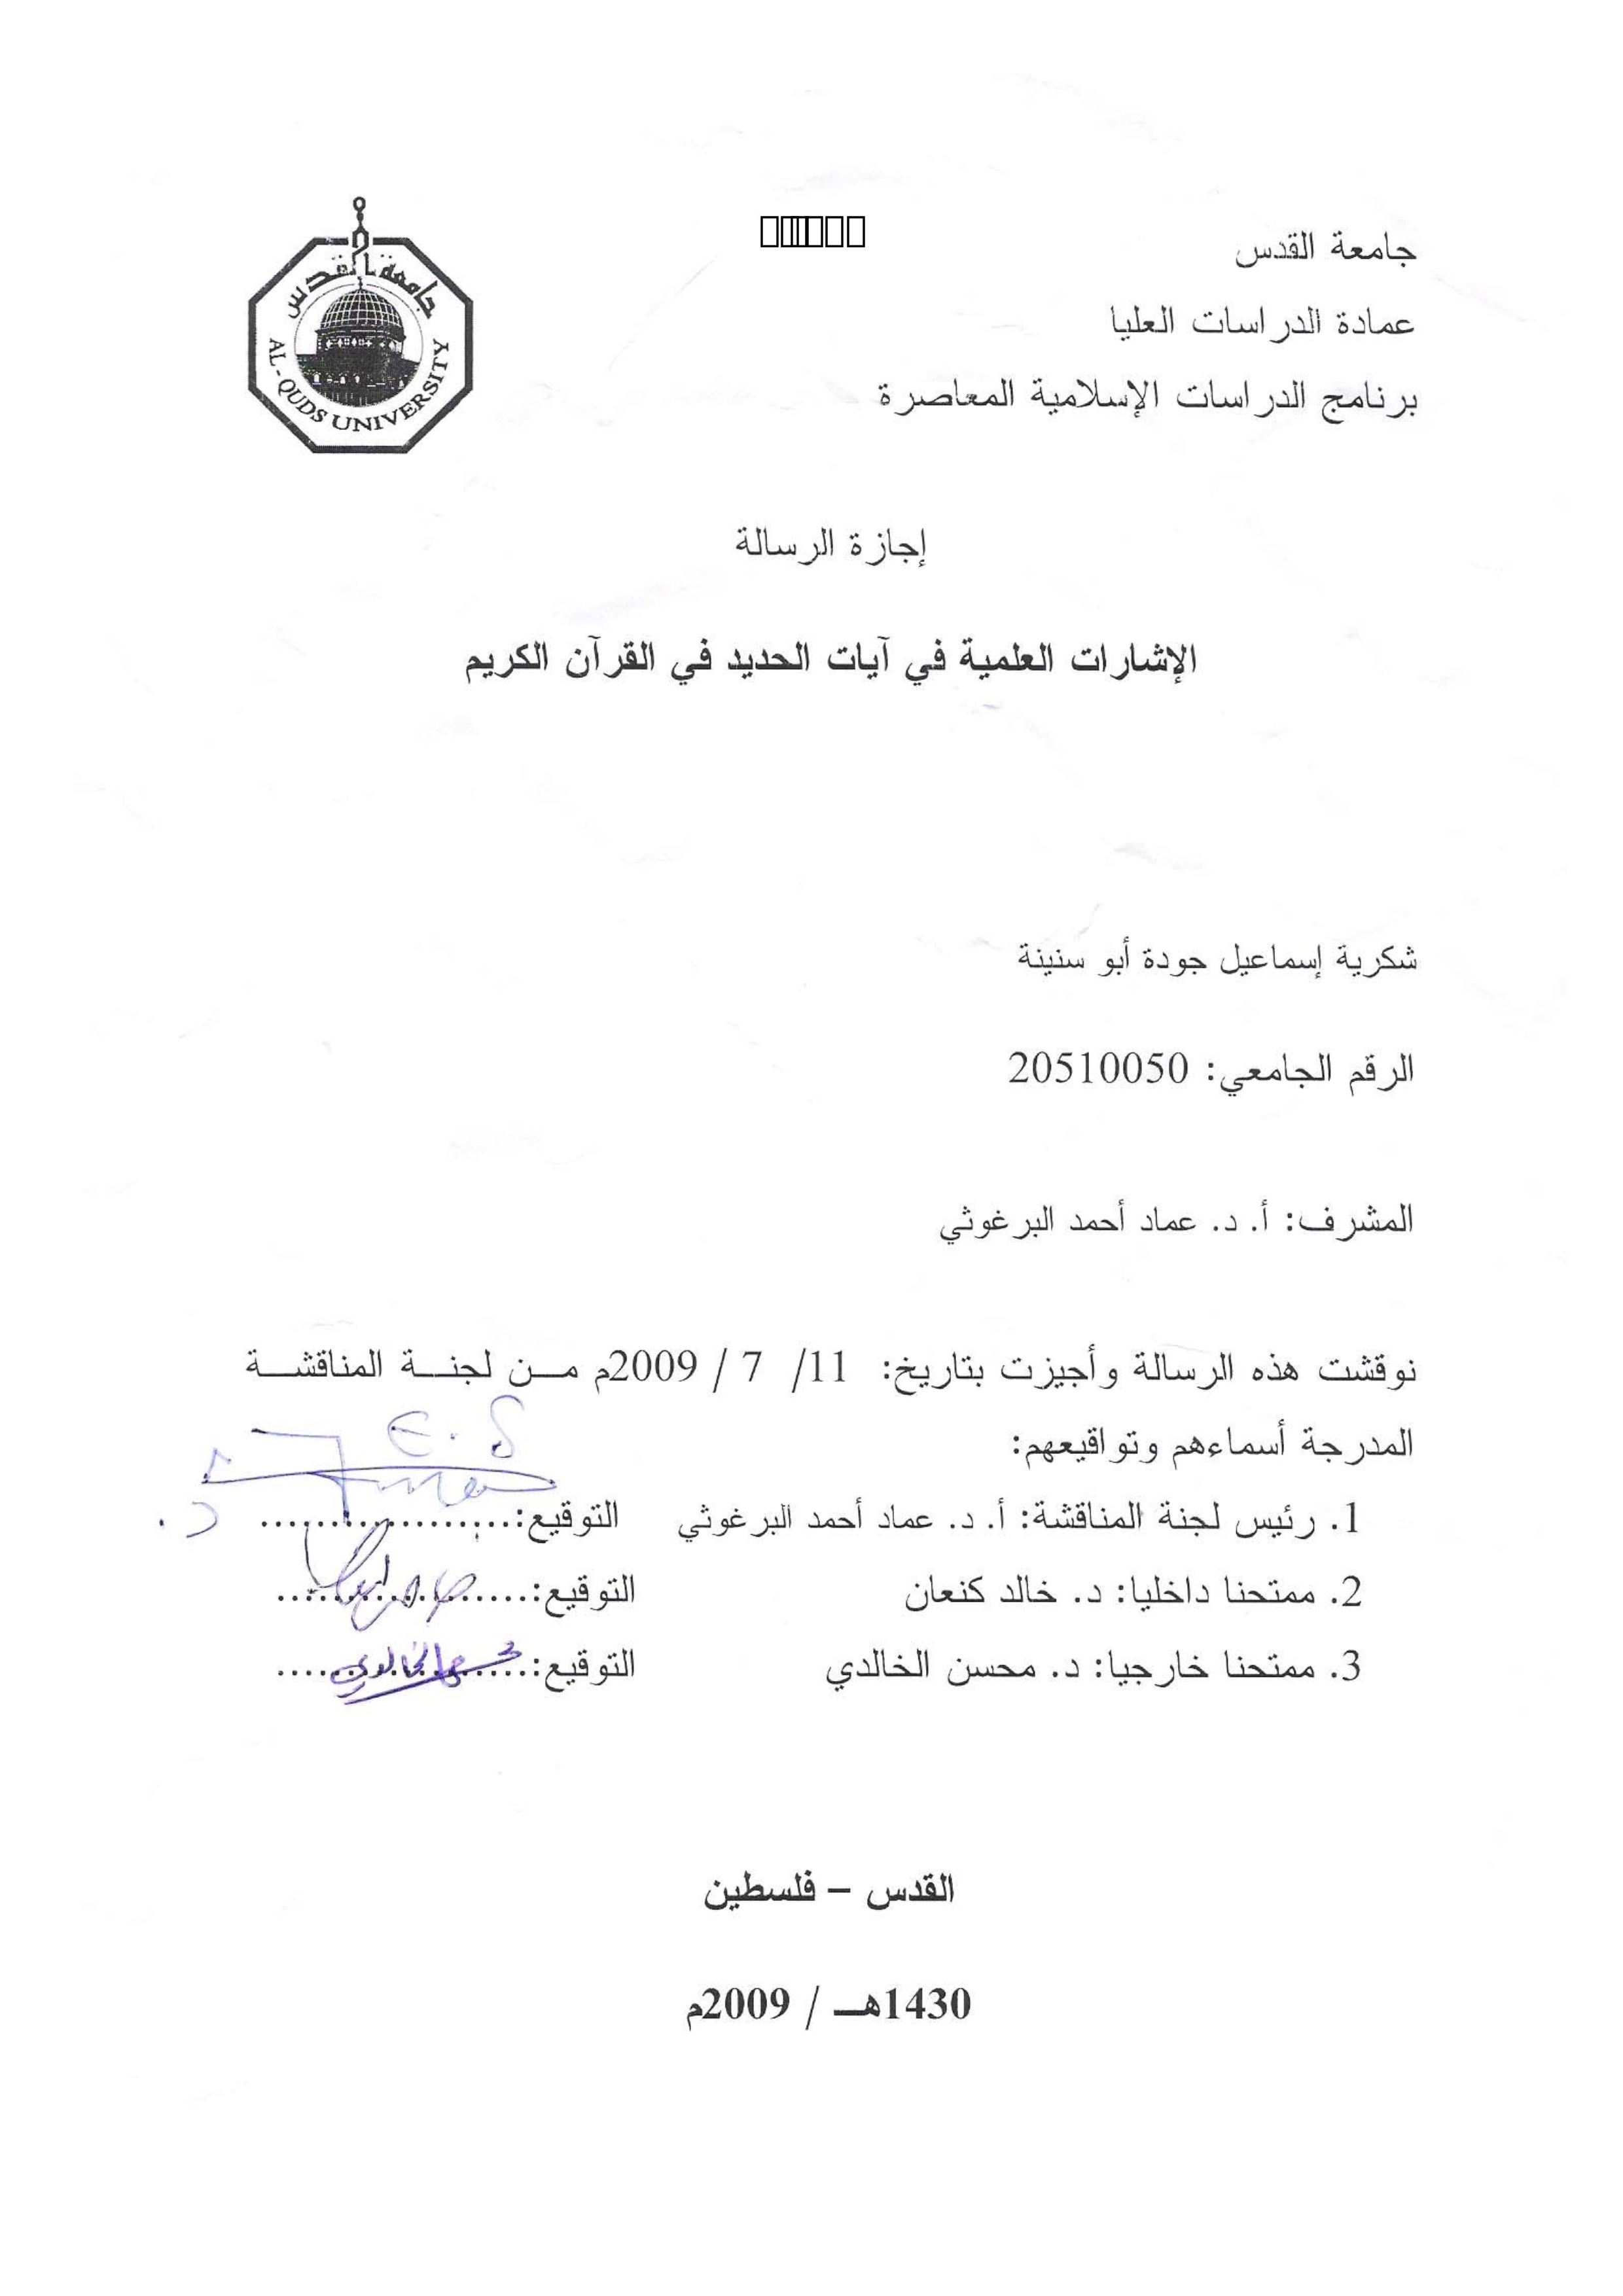 جامعة القدس
عمادة الدراسات العليا
برنامج الدراسات الإسلامية المعاصرة
جامعة القدس
AL-QUDS UNIVERSITY
إجازة الرسالة
الإشارات العلمية في آيات الحديد في القرآن الكريم
شكرية إسماعيل جودة أبو سنينة
الرقم الجامعي: 20510050
المشرف: أ. د. عماد أحمد البرغوثي
نوقشت هذه الرسالة وأجيزت بتاريخ: 11/ 7 / 2009م مـن لجنـة المناقشـة
المدرجة أسماءهم وتواقيعهم:
1. رئيس لجنة المناقشة: أ. د. عماد أحمد البرغوثي التوقيع:...................
2. ممتحنا داخليا: د. خالد كنعان التوقيع:...................
3. ممتحنا خارجيا: د. محسن الخالدي التوقيع:...................
القدس – فلسطين
1430هـ / 2009م